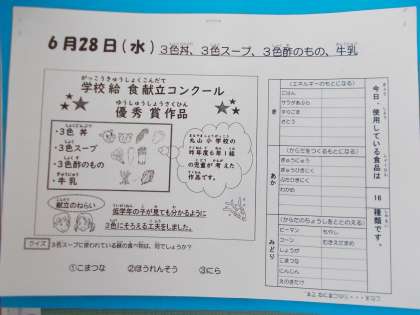 6月28日(水) 3色丼、3色スープ、3色酢のもの、牛乳
がっこうきゅうしょくこんだて
学校給食献立コンクール
ゆうしゅうしょうさくひん
優秀賞作品
・3色丼
・3色スープ
・3色酢のもの
・牛乳
丸山小学校の
昨年度6年1組
の児童が考えた
作品です。
献立のねらい
低学年の子が見ても分かるように
3色にそろえる工夫をしました。
クイズ 3色スープに使われている緑の食べ物は、何でしょうか？
①こまつな ②ほうれんそう ③にら
今日、使用している食品は 16 種類です。
き
(エネルギーのもとになる)
ごはん
サラダあぶら
さとう
あか
(からだをつくるもとになる)
ぎゅうにゅう
ぶたひきにく
わかめ
みどり
(からだのちょうしをととのえる)
ピーマン もやし
コーン
しょうが
こまつな
にんじん
えのきたけ